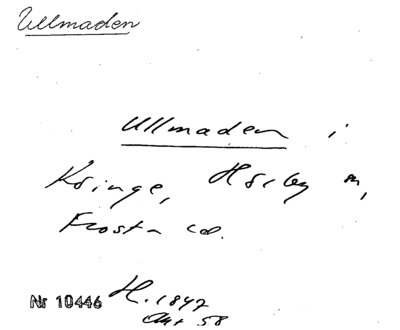 Ullmaden
Ullmaden i
Kringe, Hörby sn,
Frosta hd.
Nr 10446 H. 1847
Akt 58